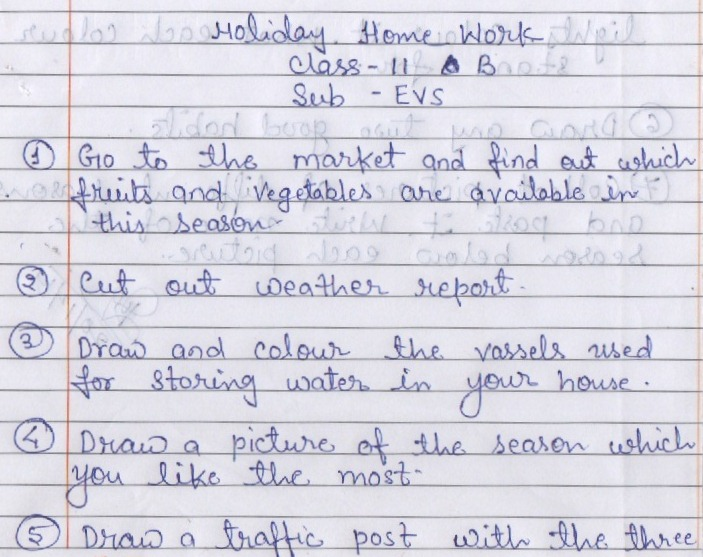 Holiday Home Work
Class - II B
Sub - EVS
① Go to the market and find out which
fruits and vegetables are available in
this season.
② Cut out weather report.
③ Draw and colour the vassels used
for storing water in your house.
④ Draw a picture of the season which
you like the most.
⑤ Draw a traffic post with the three